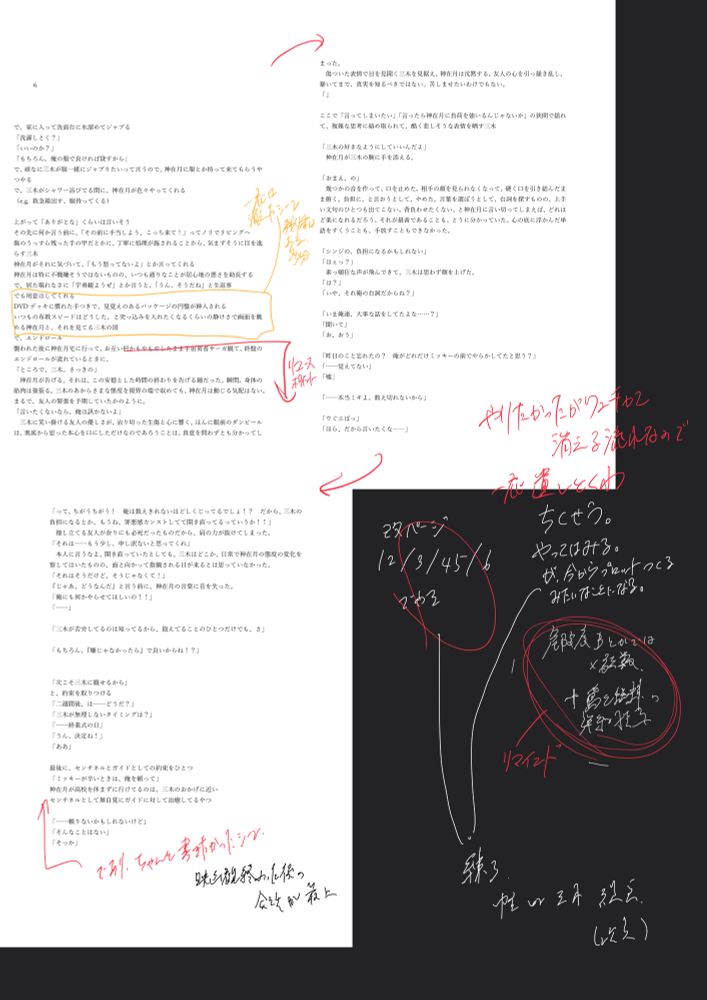 6
で、家に入って洗面台に水溜めてジャブる
「洗濯しとく？」
「いいのか？」
「もちろん、俺の服で良ければ貸すから」
で、頑なに三木が服一緒にジャブりたいって言うので、神在月に服とか持って来てもらうや
つやる
で、三木がシャワー浴びてる間に、神在月が色々やってくれる
（e.g. 救急箱出す、服持ってくる）
上がって「ありがとな」くらいは言いそう
その先に何か言う前に、「その前に手当しよう、こっち来て！」ってノリでリビングへ
傷のうっすら残った手の甲だとかに、丁寧に処理が施されることから、気まずそうに目を逸
らす三木
神在月がそれに気づいて、「もう怒ってないよ」とか言ってくれる
神在月は特に不機嫌そうではないものの、いつも通りなことが居心地の悪さを助長する
で、居た堪れなさに「宇勇観ようぜ」とか言うと、「うん、そうだね」と生返事
でも用意はしてくれる
DVDデッキに慣れた手つきで、見覚えのあるパッケージの円盤が挿入される
いつもの布教スピードはどうした、と突っ込みを入れたくなるくらいの静けさで画面を眺
める神在月と、それを見てる三木の図
で、エンドロール
襲われた後に神在月宅に行って、お互い何かもやもやしたまま宇宙勇者サーガ観て、終盤の
エンドロールが流れているときに、
「ところで、三木、さっきの」
神在月が告げる。それは、この安穏とした時間の終わりを告げる鐘だった。瞬間、身体の
筋肉は強張る。三木のあからさまな態度を視界の端で収めても、神在月は動じる気配はない。
まるで、友人の緊張を予期していたかのように。
「言いたくないなら、俺は訊かないよ」
三木に笑い掛ける友人の優しさが、治り切った生傷と心に響く。ほんに眼前のダンピール
は、奥底から思った本心を口にしただけなのであろうことは、真意を問わずとも分かってし
まった。
傷ついた表情で目を見開く三木を見据え、神在月は沈黙する。友人の心を引っ掻き乱し、
暴いてまで、真実を知るべきではない。苦しませたいわけでもない。
「」
ここで「言ってしまいたい」「言ったら神在月に負荷を強いるんじゃないか」の狭間で揺れ
て、複雑な思考に絡め取られて、酷く悲しそうな表情を晒す三木
「三木の好きなようにしていいんだよ」
神在月が三木の腕に手を添える。
「おまえ、の」
幾つかの音を作って、口を止めた。相手の顔を見られなくなって、硬く口を引き結んだま
ま俯く。負担に、と言おうとして、やめた。言葉を選ぼうとして、台詞を探すものの、上手
い文句のひとつも出てこない。背負わせたくない、と神在月に言い切ってしまえば、どれほ
ど楽になれるだろう。それが最善であることも、とうに分かっていた。心の底に浮かんだ単
語をすくうことも、手放すこともできなかった。
「シンジの、負担になるかもしれない」
「はぇっ？」
素っ頓狂な声が飛んできて、三木は思わず顔を上げた。
「は？」
「いや、それ俺の台詞だからね？」
「いま俺達、大事な話をしてたよな……？」
「聞いて」
「お、おう」
「昨日のこと忘れたの？　俺がどれだけミッキーの前でやらかしてたと思う？」
「──覚えてない」
「嘘」
「──本当ミキよ、数え切れないから」
「ウぐエぼっ」
「ほら、だから言いたくな──」
「って、ちがうちがう！　俺は数えきれないほどしくじってるでしょ！？　だから、三木の
負担になるとか、もうね、罪悪感カンストしてて開き直ってるっていうか！！」
捲し立てる友人が余りにも必死だったものだから、肩の力が抜けてしまった。
「それは──もう少し、申し訳ないと思ってくれ」
本人に言うなよ、開き直っていたとしても。三木はどこか、日常で神在月の態度の変化を
察してはいたものの、面と向かって指摘される日が来るとは思っていなかった。
「それはそうだけど、そうじゃなくて！」
「じゃあ、どうなんだ」と言う前に、神在月の言葉に音を失った。
「俺にも何かやらせてほしいの！！」
「──」
「三木が苦労してるのは知ってるから、抱えてることのひとつだけでも、さ」
「もちろん、『嫌じゃなかったら』で良いからね！？」
「次こそ三木に観せるから」
と、約束を取りつける
「二週間後、は──どうだ？」
「三木が無理しないタイミングは？」
「──終業式の日」
「うん、決定ね！」
「ああ」
最後に、センチネルとガイドとしての約束をひとつ
「ミッキーが辛いときは、俺を頼って」
神在月が高校を休まずに行けてるのは、三木のおかげに近い
センチネルとして無自覚にガイドに対して治癒してるやつ
「──頼りないかもしれないけど」
「そんなことはない」
「そっか」
やりたかったがリューチャで
消える流れなので
一応遺しとくわ
ちくせう。
やってはみる。
が、今からプロットつくる
みたいなことになる。
改ページ
12/3/45/6
でわる
リマインド
であり、ちゃんと書きたかったシーン
映画観終わった後の
会話が最上